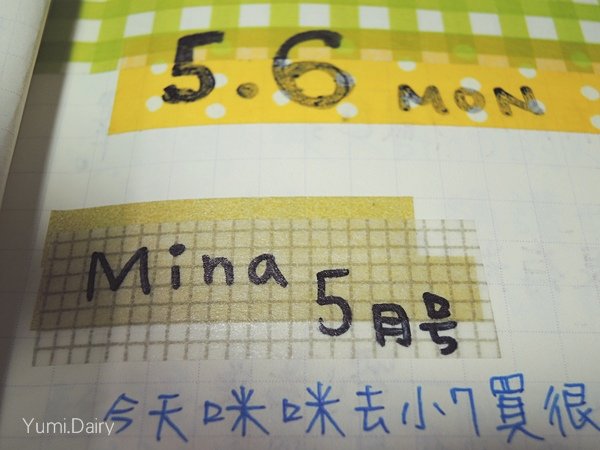 5.6 MON
Mina 5月号
今天咪咪去小7買很
Yumi.Dairy